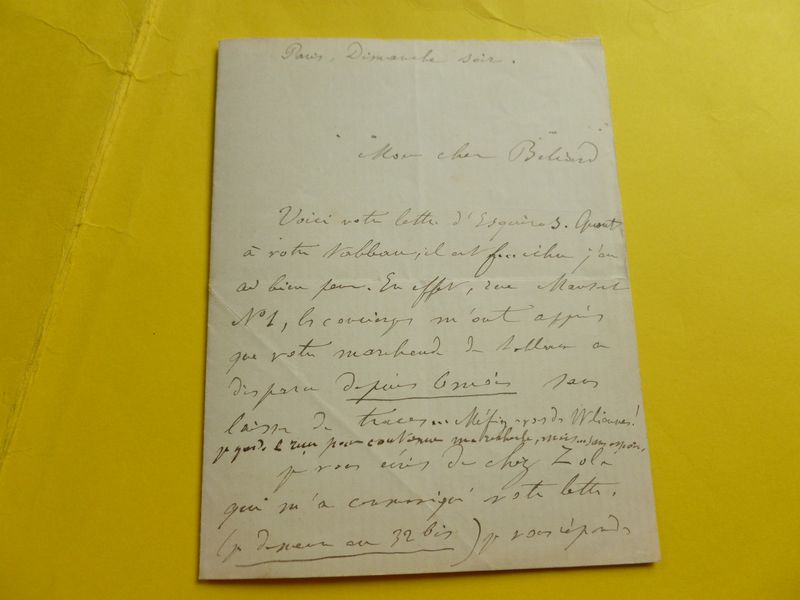 Paris, Dimanche soir.
Mon cher Béliard
Voici votre lettre d'Esquiros. Quant
à votre tableau, il est f...ichu j'en
ai bien peur. En effet, rue
No 1, les concierges m'ont appris
que votre marchand de tableaux a
disparu depuis 6 mois sans
laisser de traces... Méfiez-vous de
je garde le reçu pour continuer ma recherche, mais sans espoir.
je vous écris de chez Zola
qui m'a communiqué votre lettre.
(je demeure au 32 bis) je vous réponds